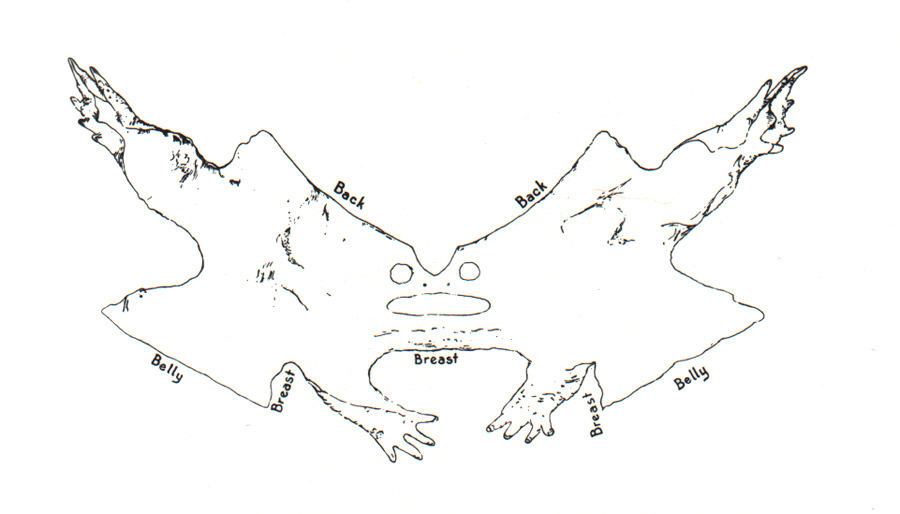 Back
Back
Breast
Belly
Breast
Breast
Belly